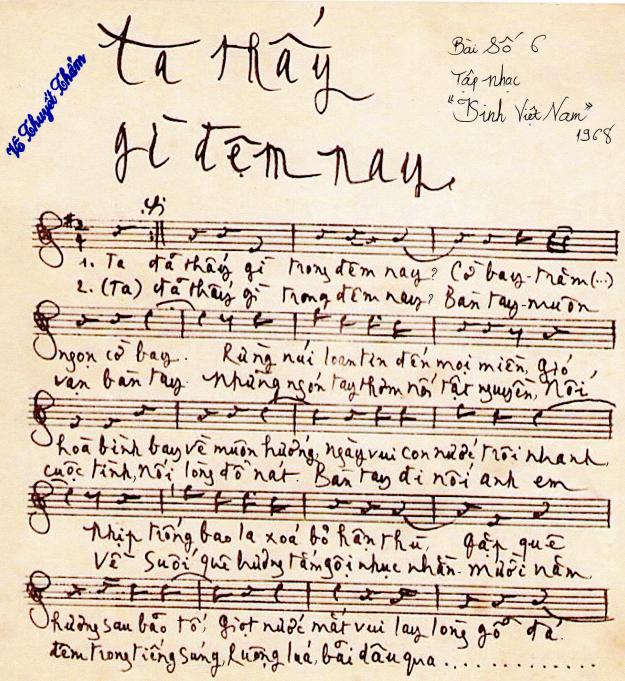 Ta thấy
gì đêm nay.
Bài Số 6
Tập nhạc
"Kinh Việt Nam"
1968
Võ Thuyết Thẩm
2
4
1. Ta đã thấy gì trong đêm nay? Cờ bay trăm (...)
2. (Ta) đã thấy gì trong đêm nay? Bàn tay muôn
ngọn cờ bay. Rừng núi loan tin đến mọi miền, gió
vạn bàn tay. Những ngón tay thơm nối tật nguyền, nối
hoà bình bay về muôn hướng, ngày vui con nước trôi nhanh
cuộc tình, nối lòng đổ nát. Bàn tay đi nối anh em
nhịp trống bao la xoá bỏ hận thù, gặp quê
về suối quê hương tắm gội nhục nhằn mười năm
hương sau bão tố, giọt nước mắt vui lay lòng gỗ đá.
đêm trong tiếng súng, ruộng lúa, bãi dâu qua ............